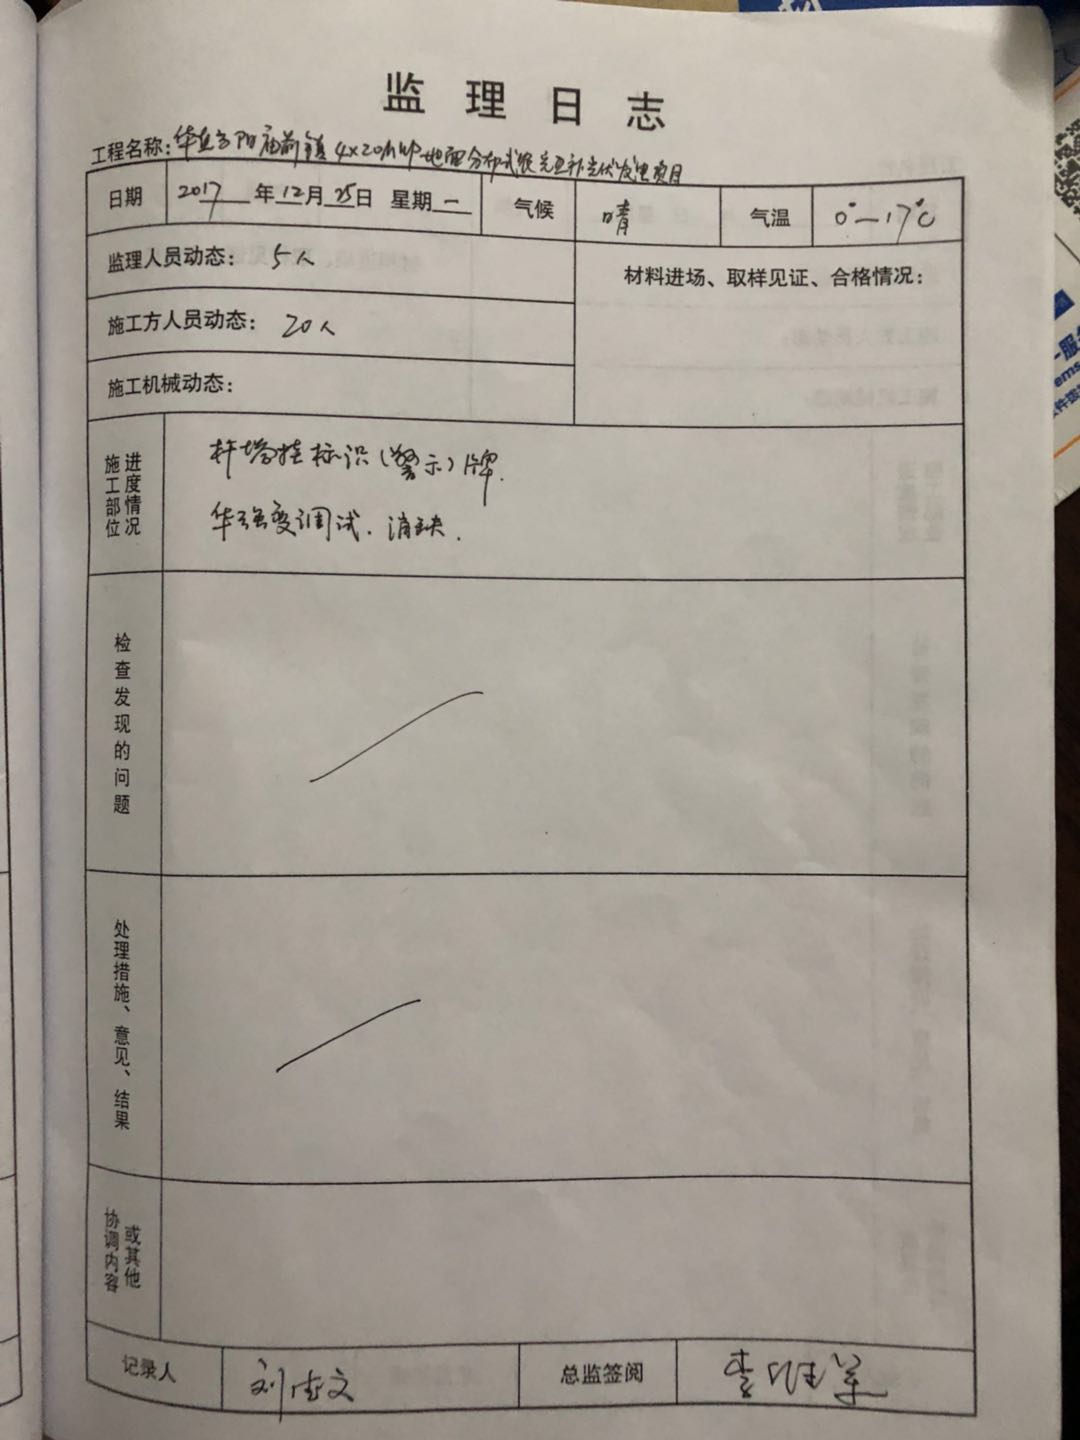 监理日志
工程名称：华直 阳庙前镇4×20MWP地面分布式农光互补光伏发电项目
日期 2017年12月25日 星期一 气候 晴 气温 0°—17℃
监理人员动态：5人
材料进场、取样见证、合格情况：
施工方人员动态：20人
施工机械动态：
施工部位进度情况
杆塔挂标识(警示)牌.
华强变调试.消缺.
检查发现的问题
处理措施、意见、结果
协调内容或其他
记录人 刘 文 总监签阅 李 军